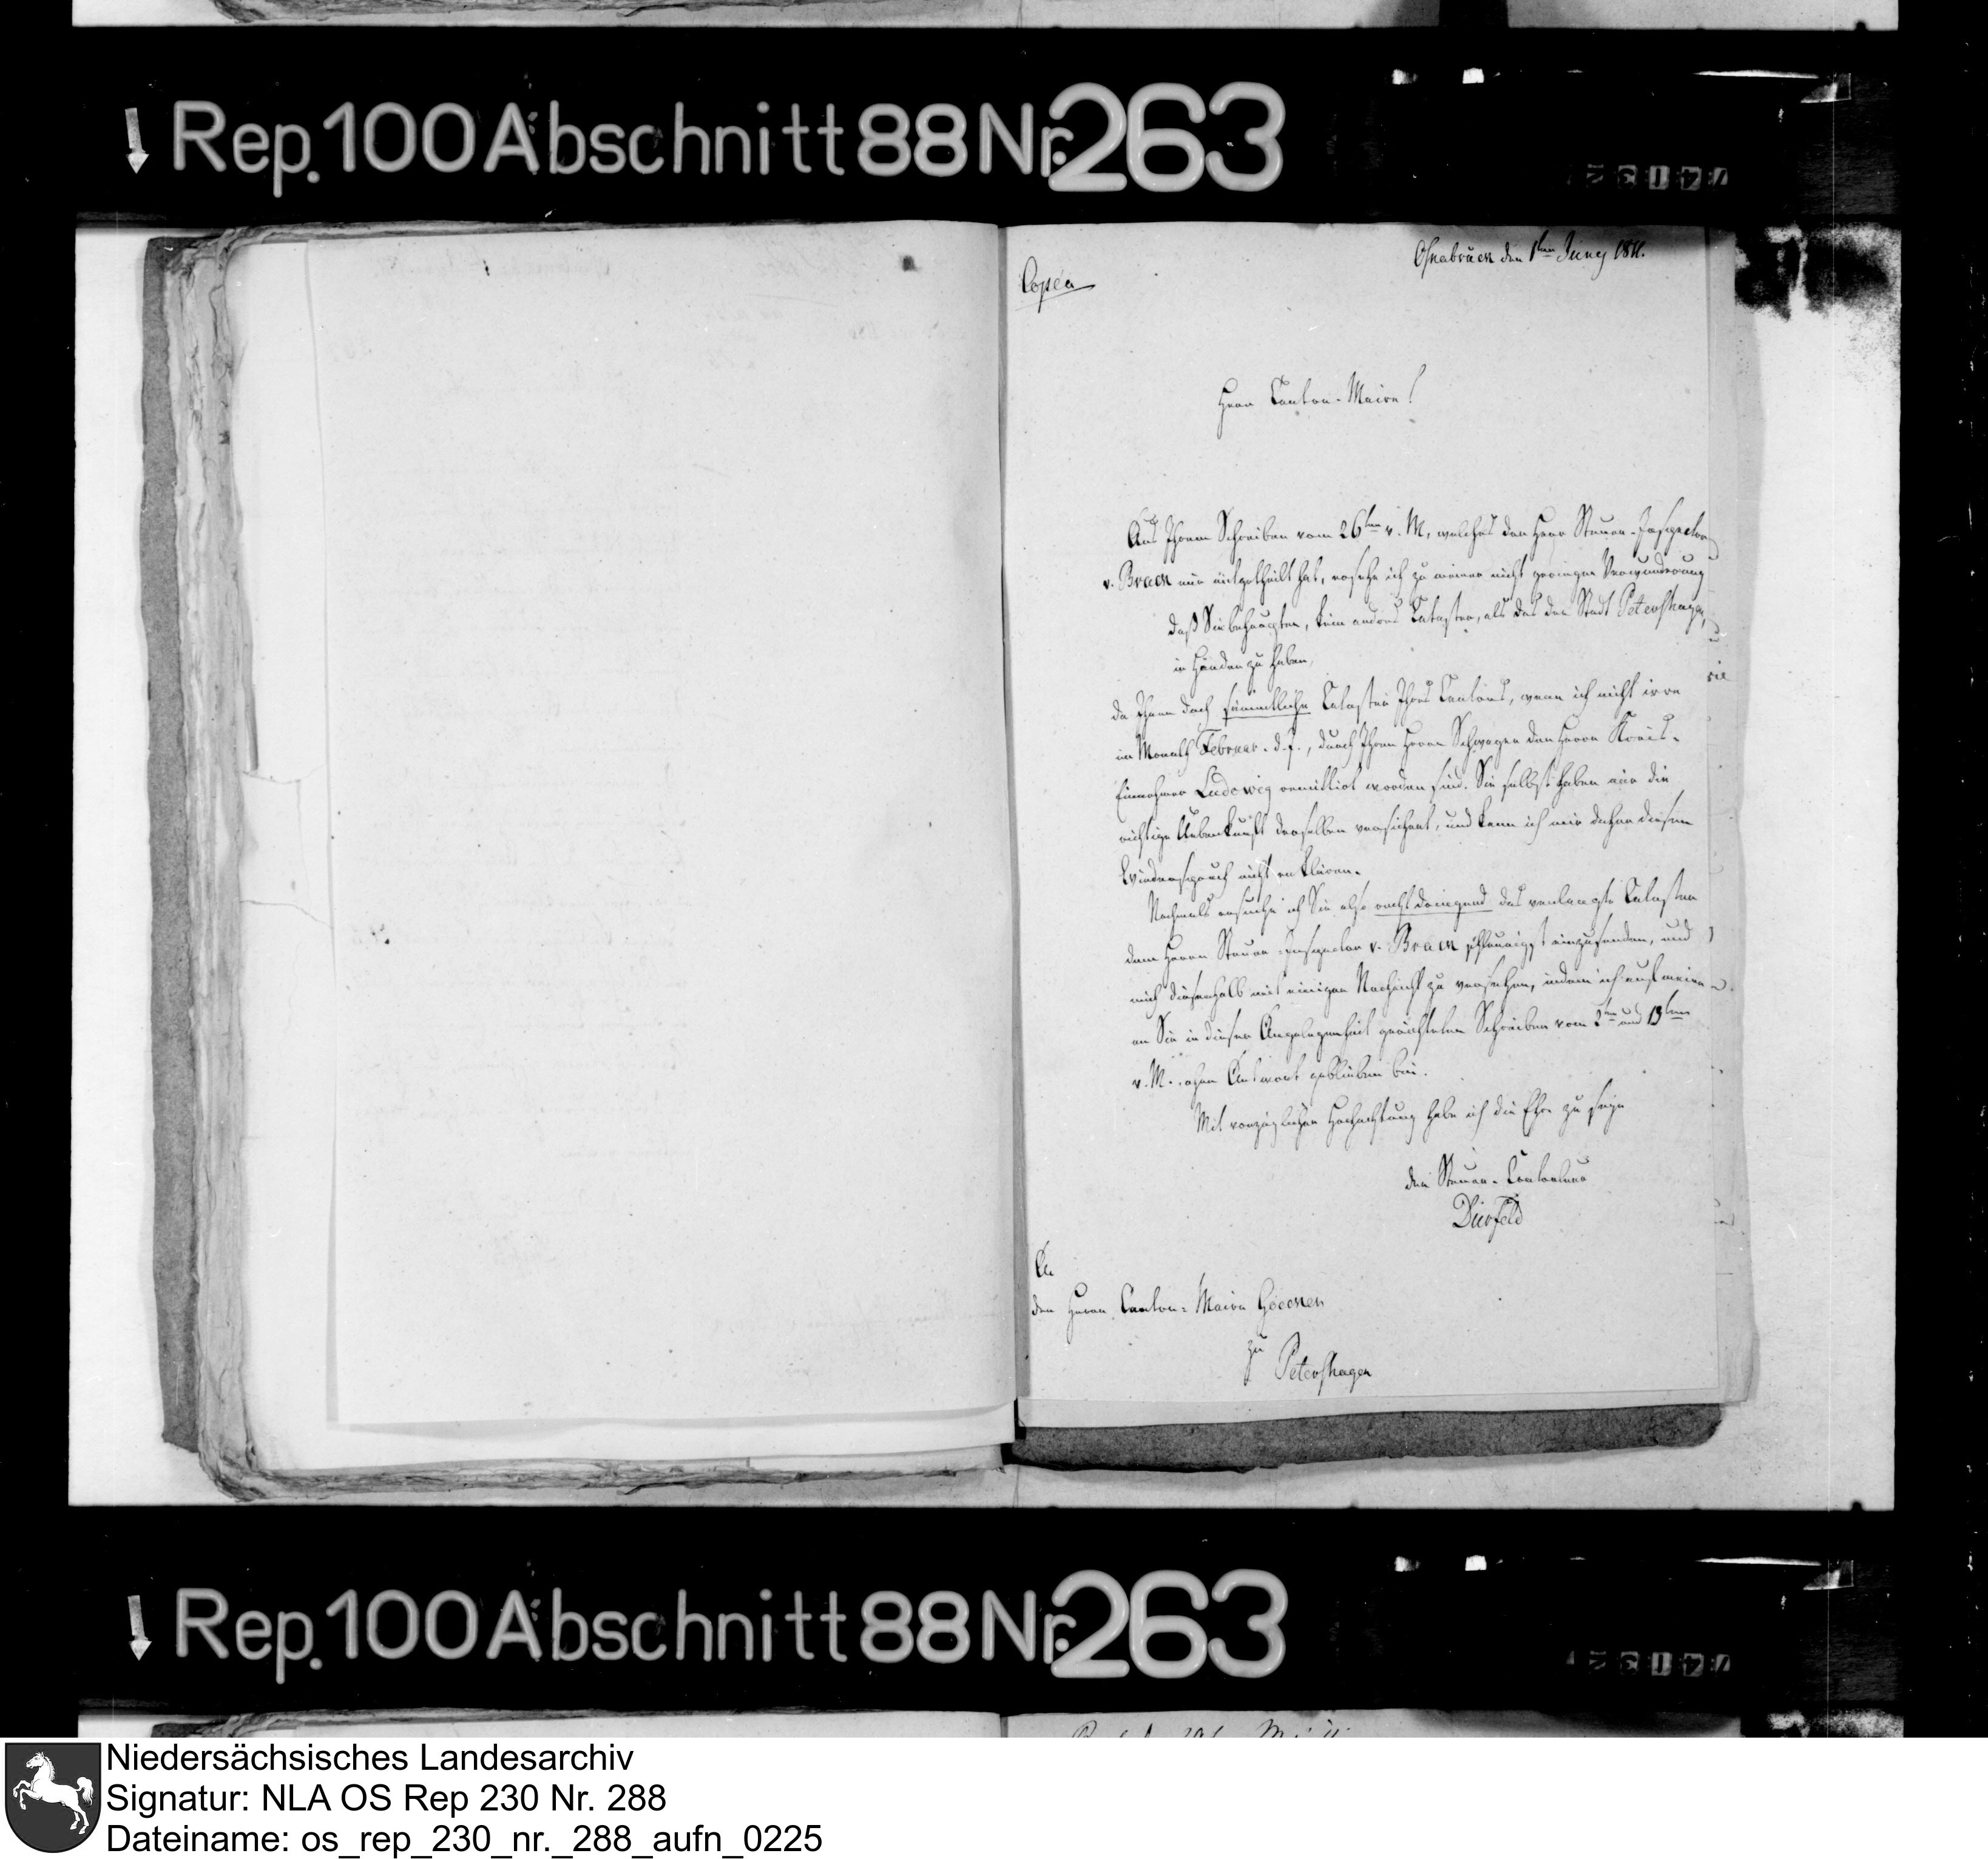 Rep. 100 Abschnitt 88 Nr. 263
Osnabrück den 1ten Juny 1811.
Copia
Herr Canton-Maire!
Aus Ihrem Schreiben vom 26ten v. M., welches der Herr Steuer-Inspector
v. Brack mir mitgetheilt hat, ersehe ich zu meiner nicht geringen Verwunderung
daß Sie behaupten, kein andres Cataster, als das der Stadt Petershagen,
in Händen zu haben,
da Ihnen doch sämmtliche Cataster Ihres Cantons, wenn ich nicht irre
im Monath Februar d. J., durch Ihren Herrn Schwager den Herrn Kreis-
Einnehmer Ludewig remittirt worden sind. Sie selbst haben mir die
richtige Ueberkunft derselben versichert, und kann ich mir daher diesen
Wiederspruch nicht erklären.
Nochmals ersuche ich Sie also recht dringend das verlangte Cataster
dem Herrn Steuer-Inspector v. Brack schleunigst einzusenden, und
mich dieserhalb mit einiger Nachricht zu versehen, indem ich auf meine
an Sie in dieser Angelegenheit gerichteten Schreiben vom und 13ten
v. M. ohne Antwort geblieben bin.
Mit vorzüglicher Hochachtung habe ich die Ehre zu seyn
der Steuer-Controleur
Dürfeld
An
den Herrn Canton-Maire
zu
Petershagen
Rep. 100 Abschnitt 88 Nr. 263
Niedersächsisches Landesarchiv
Signatur: NLA OS Rep 230 Nr. 288
Dateiname: os_rep_230_nr._288_aufn_0225